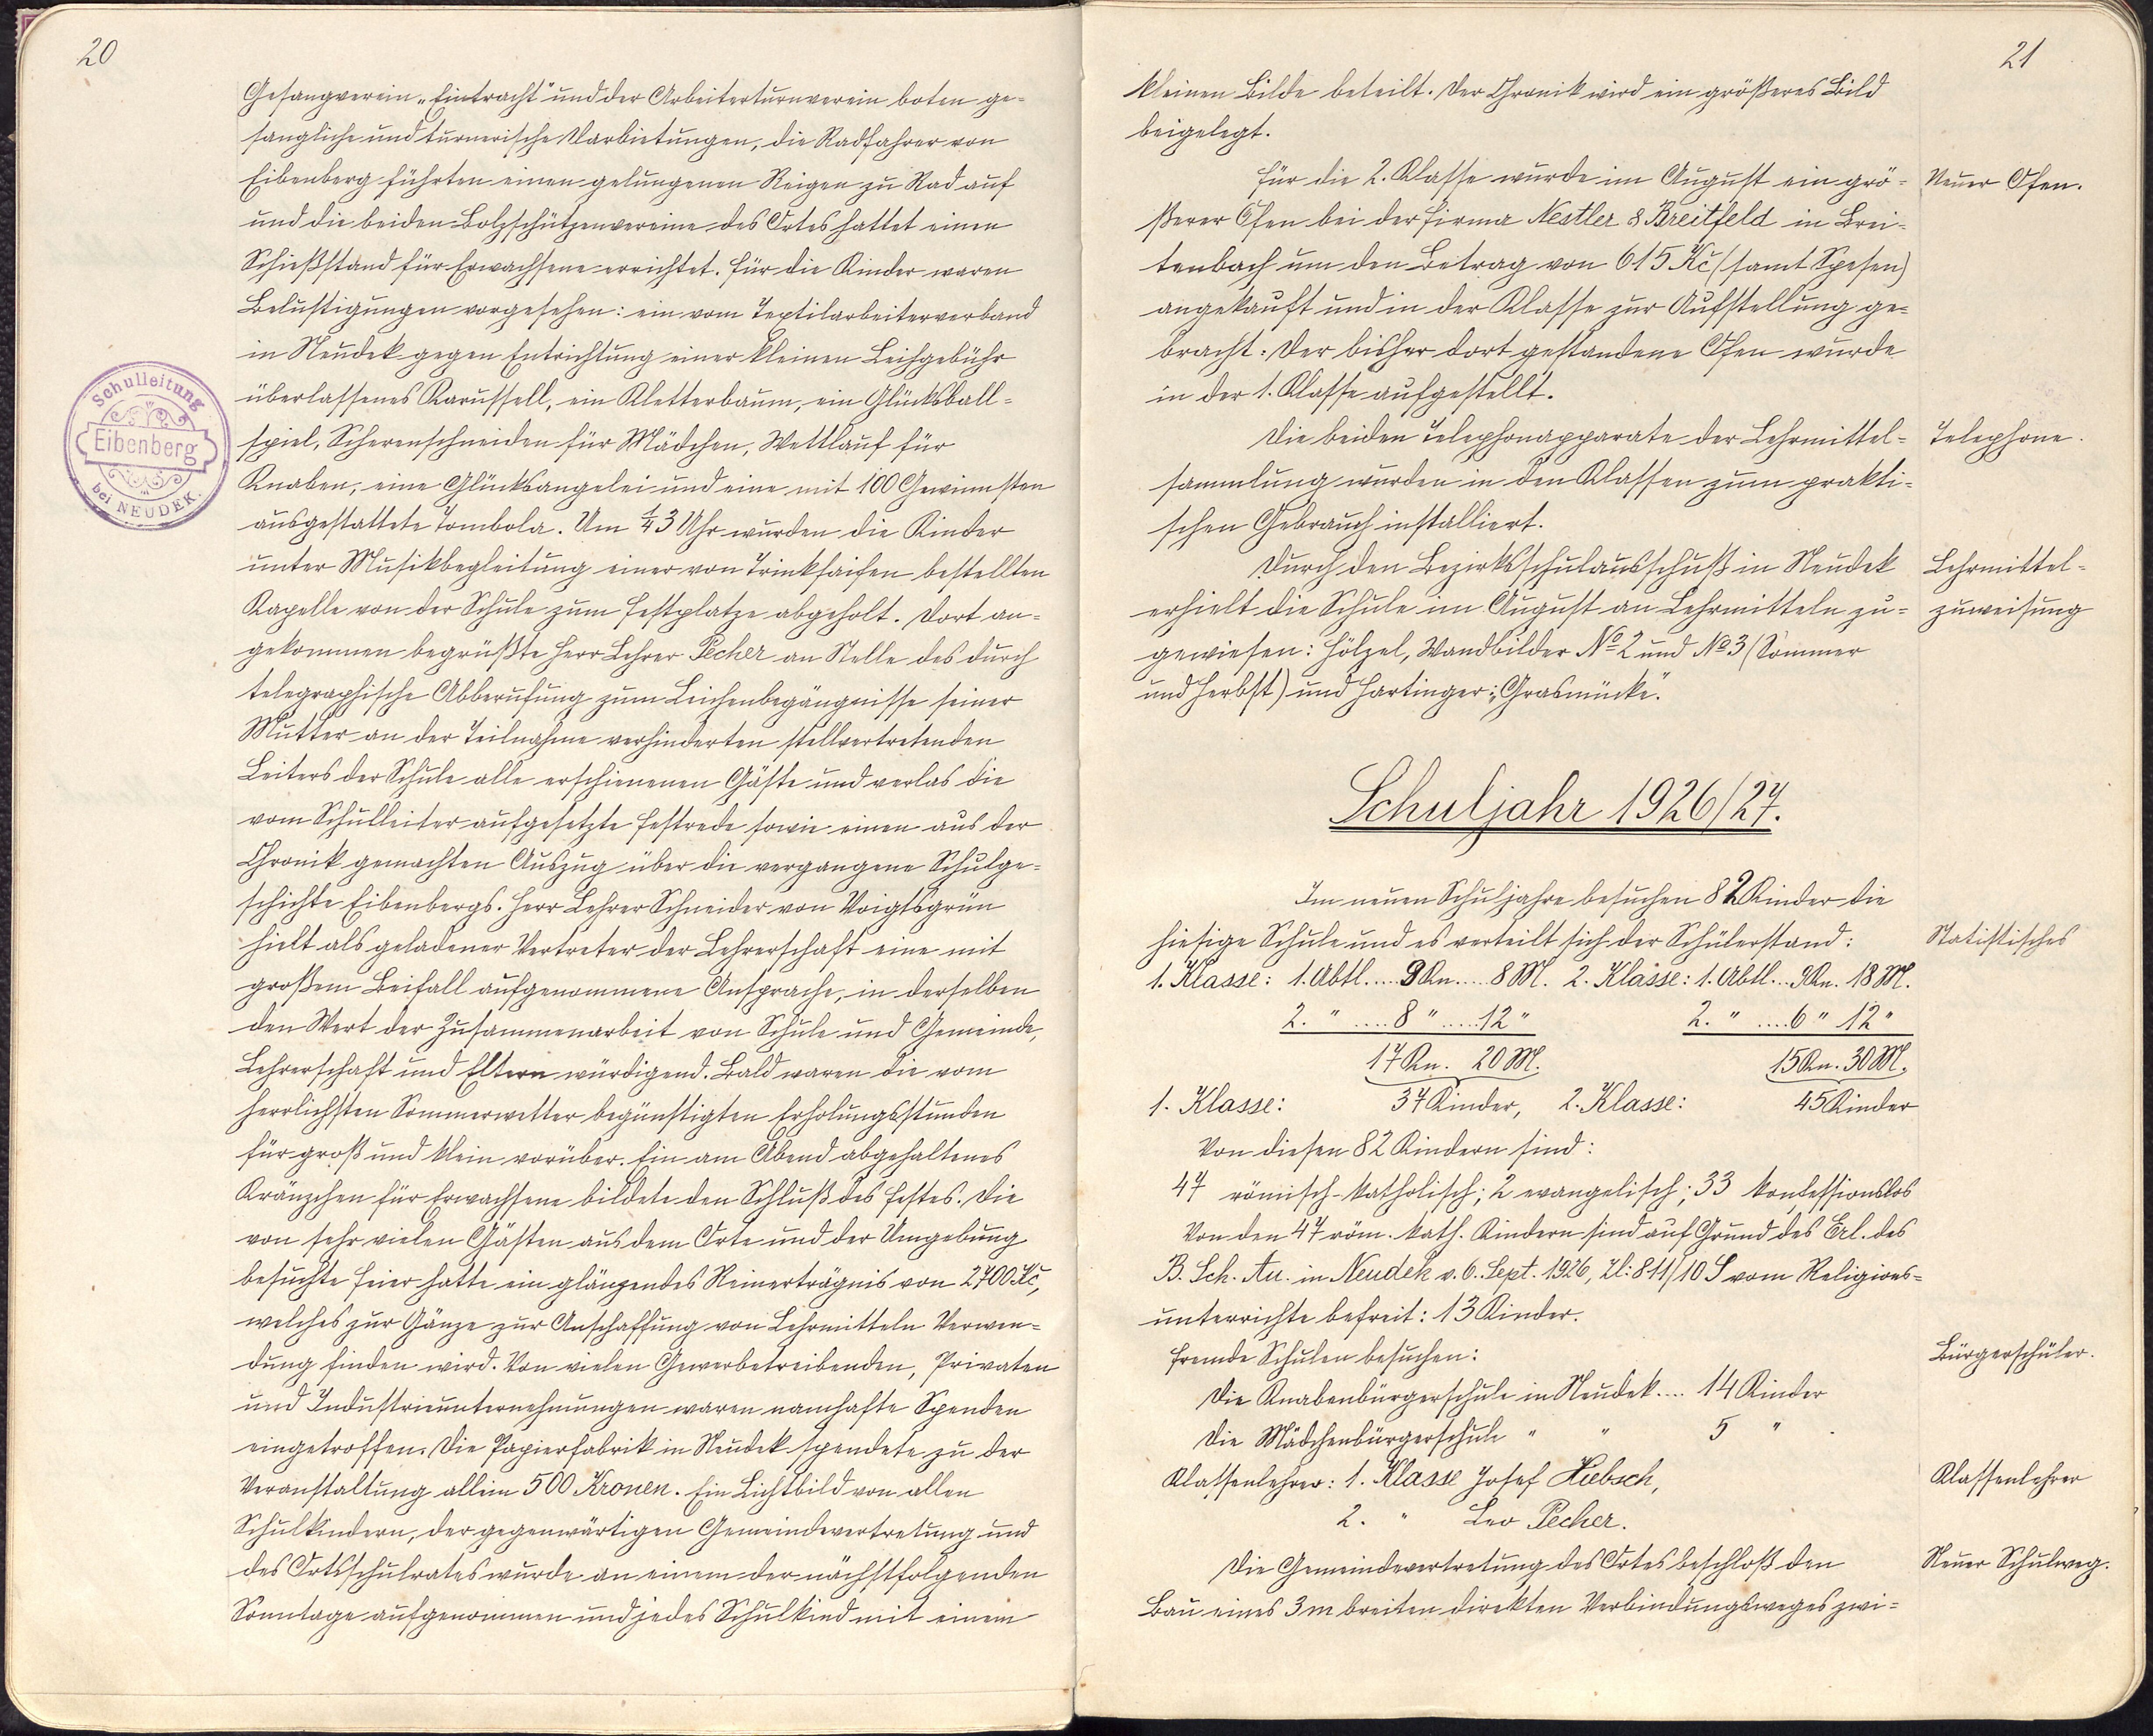 20
Gesangverein „Eintracht" und der Arbeiterturnverein boten ge-
sangliche und turnerische Darbietungen, die Radfahrer von
Eibenberg führten einen gelungenen Reigen zu Rad auf
und die beiden Bolzschützenvereine des Ortes hattet einen
Schießstand für Erwachsene errichtet. Für die Kinder waren
Belustigungen vorgesehen: ein vom Textilarbeiterverband
in Neudek gegen Entrichtung einer kleinen Leihgebühr
überlassenes Karussell, ein Kletterbaum, ein Glücksball-
spiel, Scherenschneiden für Mädchen, Wettlauf für
Knaben, eine Glücksangelei und eine mit 100 Gewinnsten
ausgestattete Tombola. Um ¼3 Uhr wurden die Kinder
unter Musikbegleitung einer von Trinksaifen bestellten
Kapelle von der Schule zum Festplatze abgeholt. Dort an-
gekommen begrüßte Herr Lehrer Pecher an Stelle des durch
telegraphische Abberufung zum Leichenbegängnisse seiner
Mutter an der Teilnahme verhinderten stellvertretenden
Leiters der Schule alle erschienenen Gäste und verlas die
vom Schulleiter aufgesetzte Festrede sowie einen aus der
Chronik gemachten Auszug über die vergangene Schulge-
schichte Eibenbergs. Herr Lehrer Schneider von Voigtsgrün
hielt als geladener Vertreter der Lehrerschaft eine mit
großem Beifall aufgenommene Ansprache, in derselben
den Wert der Zusammenarbeit von Schule und Gemeinde,
Lehrerschaft und Eltern würdigend. Bald waren die vom
herrlichsten Sommerwetter begünstigten Erholungsstunden
für groß und klein vorüber. Ein am Abend abgehaltenes
Kränzchen für Erwachsene bildete den Schluß des Festes. Die
von sehr vielen Gästen aus dem Orte und der Umgebung
besuchte Feier hatte ein glänzendes Reinerträgnis von 2700 Kč,
welches zur Gänze zur Anschaffung von Lehrmitteln Verwen-
dung finden wird. Von vielen Gewerbetreibenden, Privaten
und Industrieunternehmungen waren namhafte Spenden
eingetroffen. Die Papierfabrik in Neudek spendete zu der
Veranstaltung allein 500 Kronen. Ein Lichtbild von allen
Schulkindern, der gegenwärtigen Gemeindevertretung und
des Ortsschulrates wurde an einem der nächstfolgenden
Sonntage aufgenommen und jedes Schulkind mit einem
Schulleitung
Eibenberg
bei NEUDEK.
21
kleinen Bilde beteilt. Der Chronik wird ein größeres Bild
beigelegt.
Für die 2. Klasse wurde im August ein grö- Neuer Ofen.
ßerer Ofen bei der Firma Nestler & Breitfeld in Brei-
tenbach um den Betrag von 615 Kč (samt Spesen)
angekauft und in der Klasse zur Aufstellung ge-
bracht. Der bisher dort gestandene Ofen wurde
in der 1. Klasse aufgestellt.
Die beiden Telephonapparate der Lehrmittel- Telephone.
sammlung wurden in den Klassen zum prakti-
schen Gebrauch installiert.
Durch den Bezirksschulausschuß in Neudek Lehrmittel-
erhielt die Schule im August an Lehrmitteln zu- zuweisung
gewiesen: Hölzel, Wandbilder No 2 und No 3 (Sommer
und Herbst) und Hartinger: „Grasmücke".
Schuljahr 1926/27.
Im neuen Schuljahre besuchen 82 Kinder die
hiesige Schule und es verteilt sich der Schülerstand: Statistisches
1. Klasse: 1. Abtl.....9 Kn.....8 M. 2. Klasse: 1. Abtl...9 Kn. 18 M.
2. " ....8 " ....12 " 2. " ....6 " 12 "
17 Kn. 20 M. 15 Kn. 30 M.
1. Klasse: 37 Kinder, 2. Klasse: 45 Kinder
Von diesen 82 Kindern sind:
47 römisch-katholisch; 2 evangelisch; 33 konfessionslos
Von den 47 röm. kath. Kindern sind auf Grund des Erl. des
B. Sch. Au. in Neudek v. 6. Sept. 1926, Zl: 811/10 S vom Religions-
unterrichte befreit: 13 Kinder.
Fremde Schulen besuchen: Bürgerschüler.
Die Knabenbürgerschule in Neudek.... 14 Kinder
Die Mädchenbürgerschule " " 5 "
Klassenlehrer: 1. Klasse Josef Hiebsch, Klassenlehrer
2. " Leo Pecher.
Die Gemeindevertretung des Ortes beschloß den Neuer Schulweg.
Bau eines 3 m breiten direkten Verbindungsweges zwi-